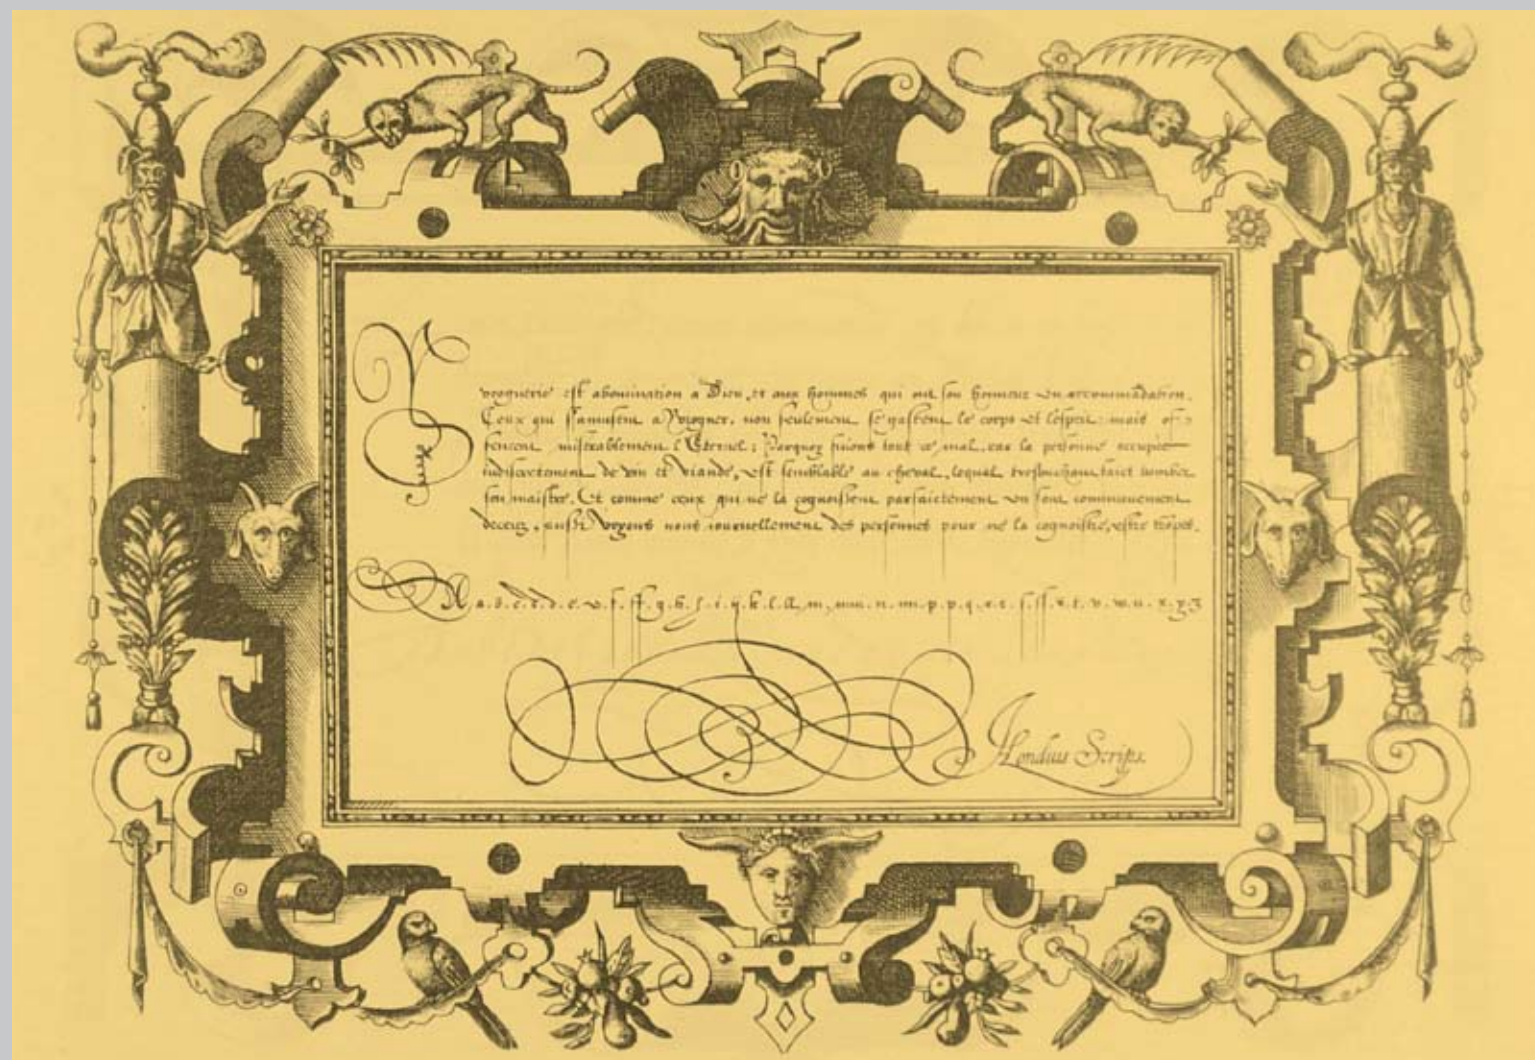 Yvrognerie est abomination a Dieu, et aux hommes qui ont son honneur en recommãdation.
Ceux qui s'amusent a Yvrogner, non seulement se gastent le corps et l'esprit: mais of=
fencent miserablement l'Eternel: Parquoy fuions tout ce mal, car la personne occupée
indiscretement de vin et viande, est semblable au cheval, lequel tresbuchant faict tomber
son maistre. Et comme ceux qui ne la cognoissent parfaictement en sont communement
deceuz, aussi voyons nous iournellement des personnes pour ne la cognoistre, estre trõpés.
A a.b.c.d.e.f.ff.g.h.i.y.k.l.ll.m.mm.n.nn.p.p.q.r.s.ss.s.t.v.w.u.x.y.z
JHondius Scrips.